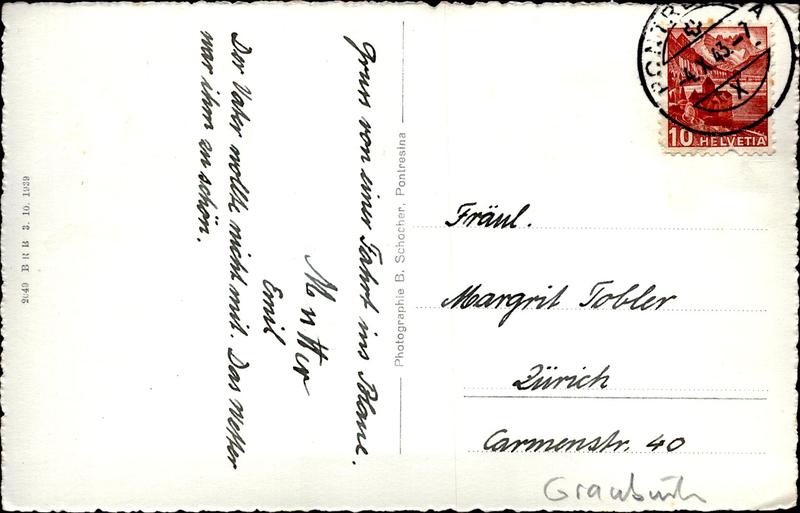 Gruss von einer Fahrt ins Blaue.
Mutter
Emil
Der Vater wollte nicht mit. Das Wetter
war ihm zu schön.
2649 B R B 3. 10. 1939
Photographie B. Schocher, Pontresina
10 HELVETIA
4.X.43.-7
X
Fräul.
Margrit Tobler
Zürich
Carmenstr. 40